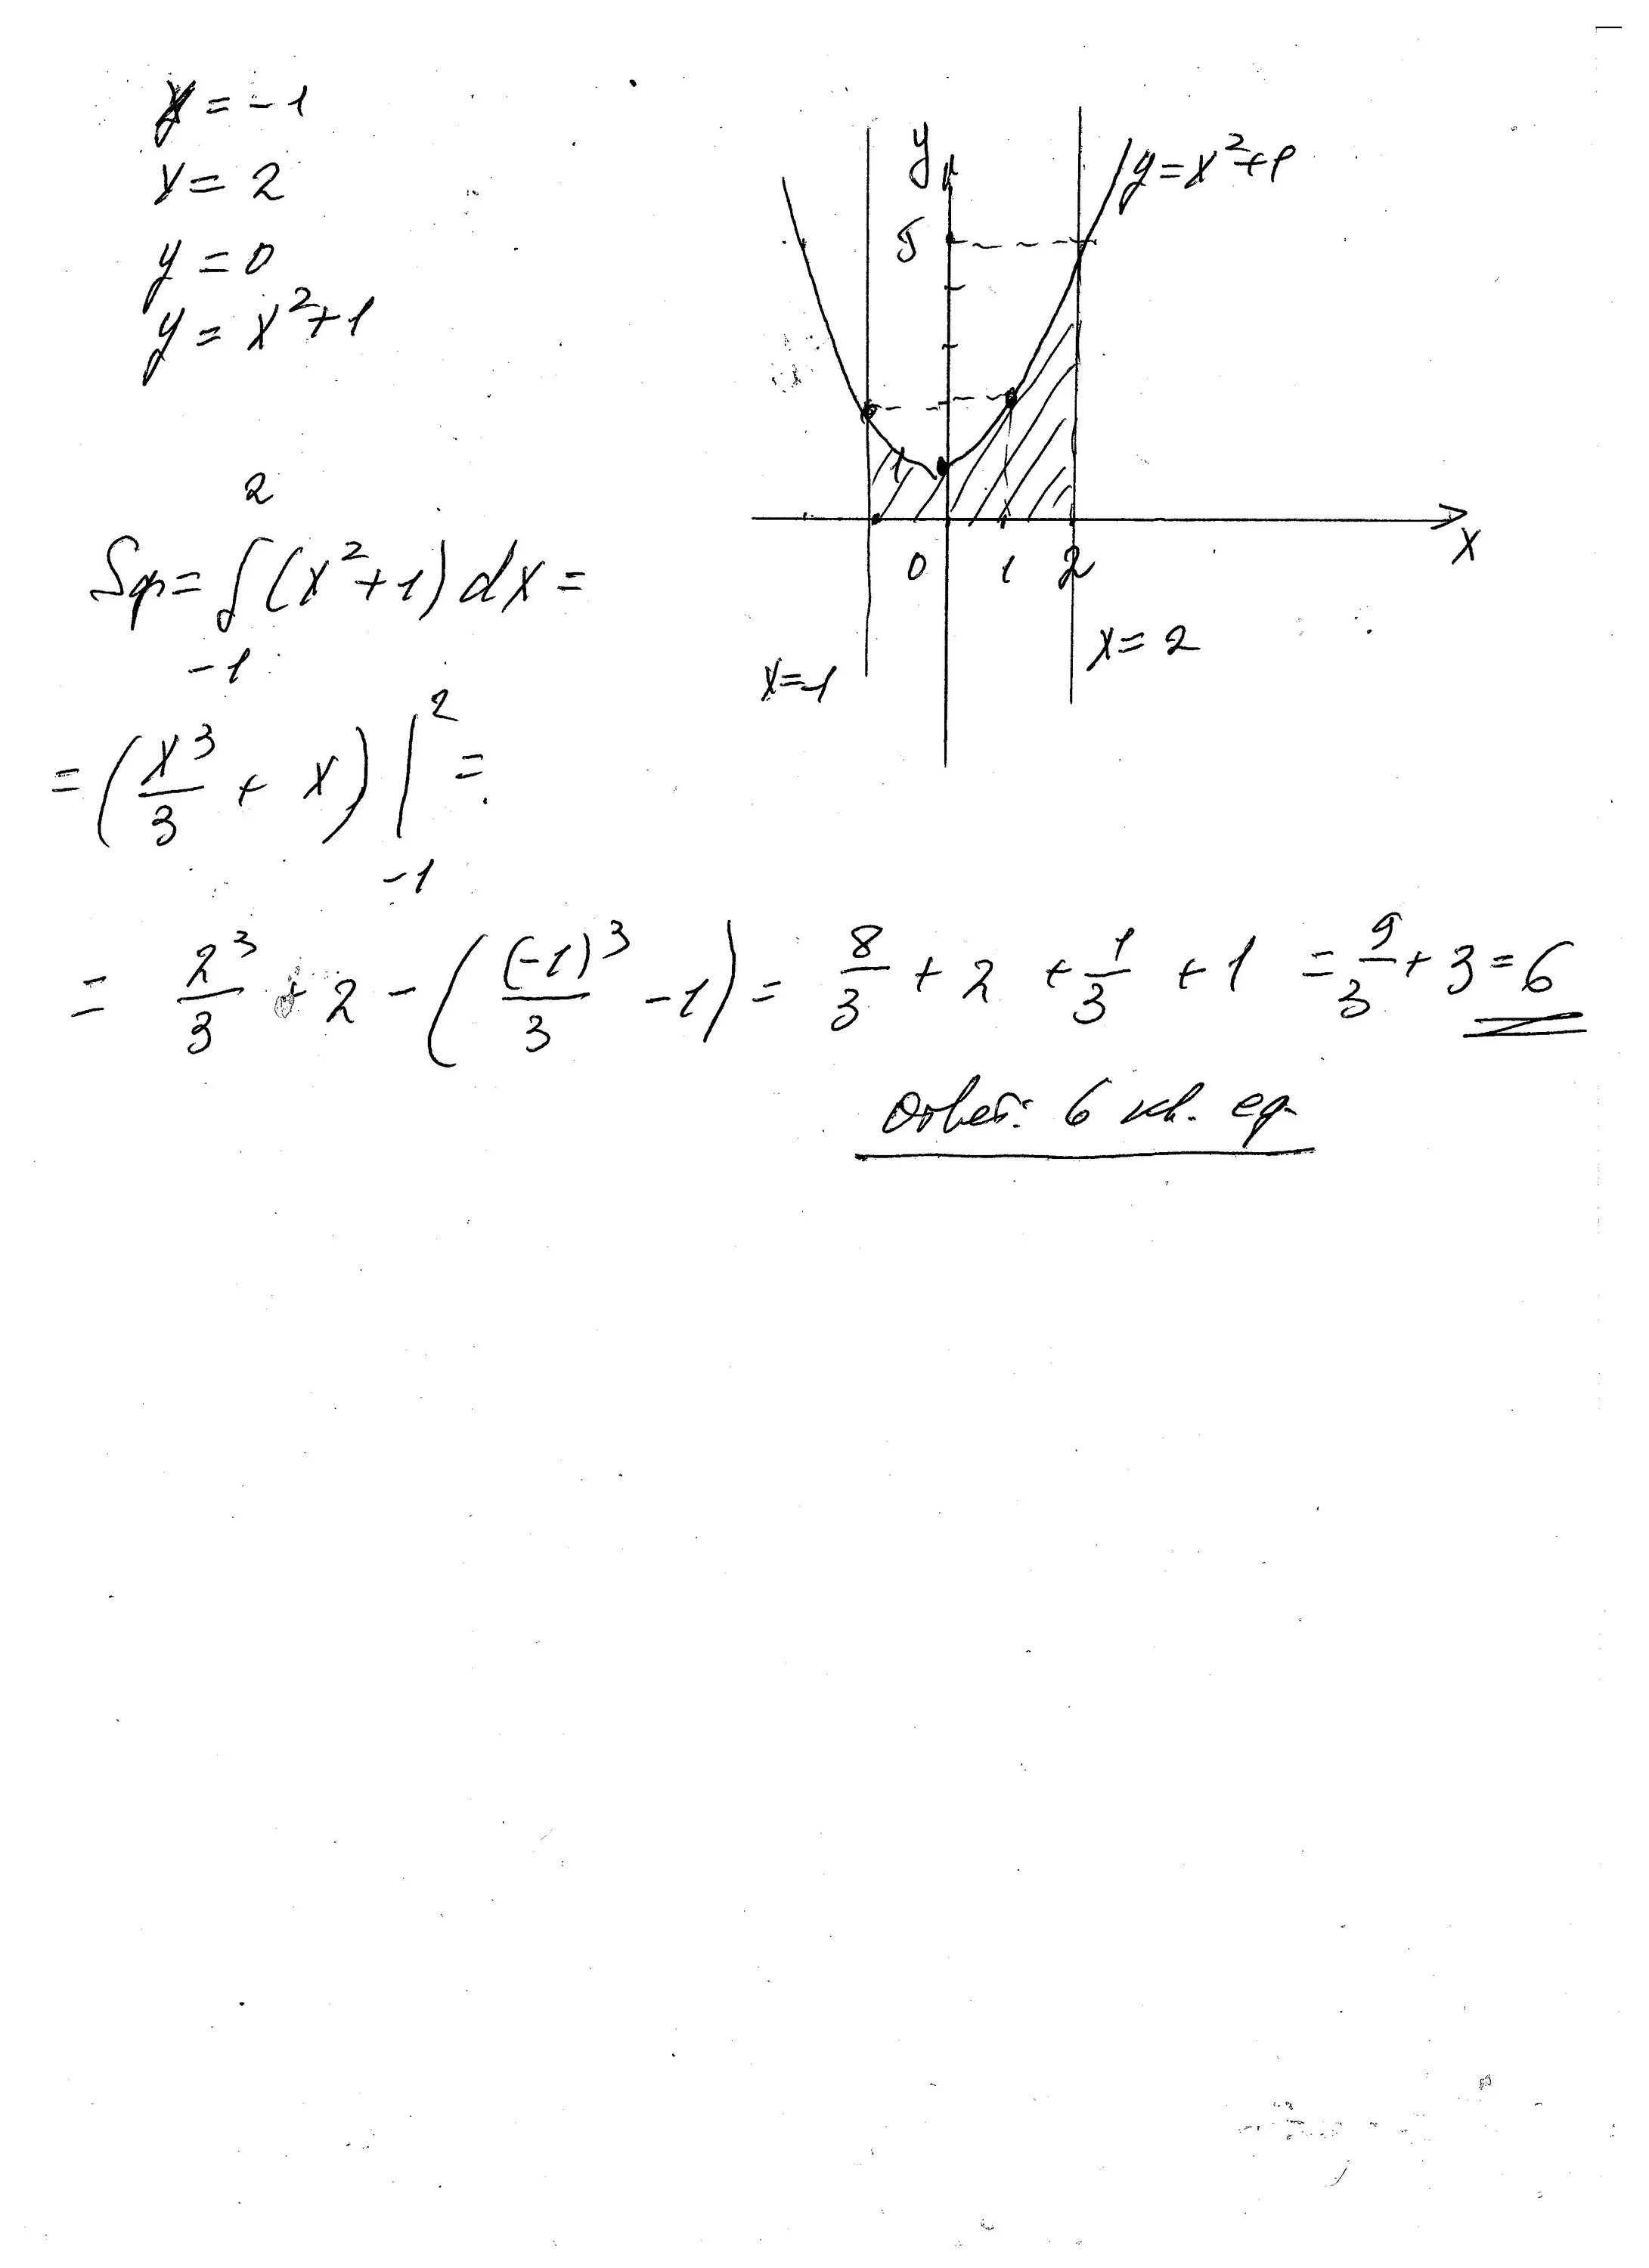 x = -1
x = 2
y = 0
y = x² + 1
y
y = x² + 1
5
1
0 1 2
x
x = -1
x = 2
Sф = ∫₋₁² (x² + 1) dx =
= (x³/3 + x) |₋₁² =
= 2³/3 + 2 - ((-1)³/3 - 1) = 8/3 + 2 + 1/3 + 1 = 9/3 + 3 = 6
Ответ: 6 кв. ед.